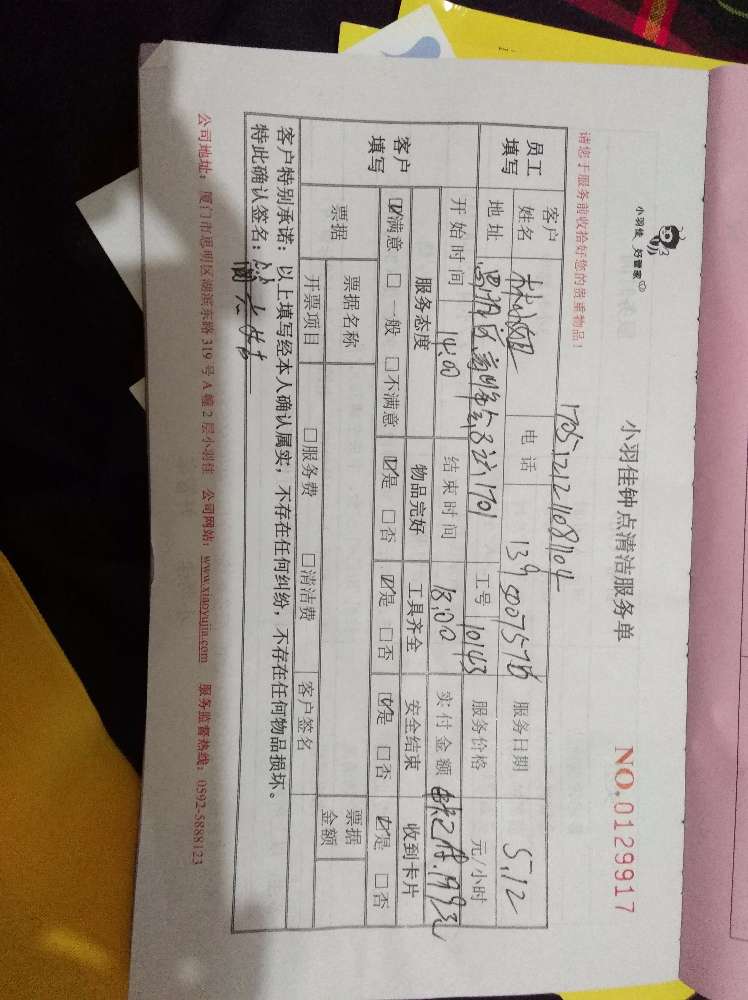 小羽佳 好管家
小羽佳钟点清洁服务单 NO.0129917
请您于服务前收拾好您的贵重物品！ 170512121081104
员工填写 客户姓名 电话 服务日期 5.12
地址 1701 工号 10143 服务价格 元/小时
客户填写 开始时间 14:00 结束时间 18:00 实付金额
服务态度 物品完好 工具齐全 安全结束 收到卡片
☑满意 □一般 □不满意 ☑是 □否 ☑是 □否 ☑是 □否 ☑是 □否
票据 票据名称 票据金额
开票项目 □服务费 □清洁费 客户签名
客户特别承诺：以上填写经本人确认属实，不存在任何纠纷，不存在任何物品损坏。
特此确认签名：
公司地址：厦门市思明区湖滨东路319号A幢2层小羽佳 公司网站：www.xiaoyujia.com 服务监督热线：0592-5888123